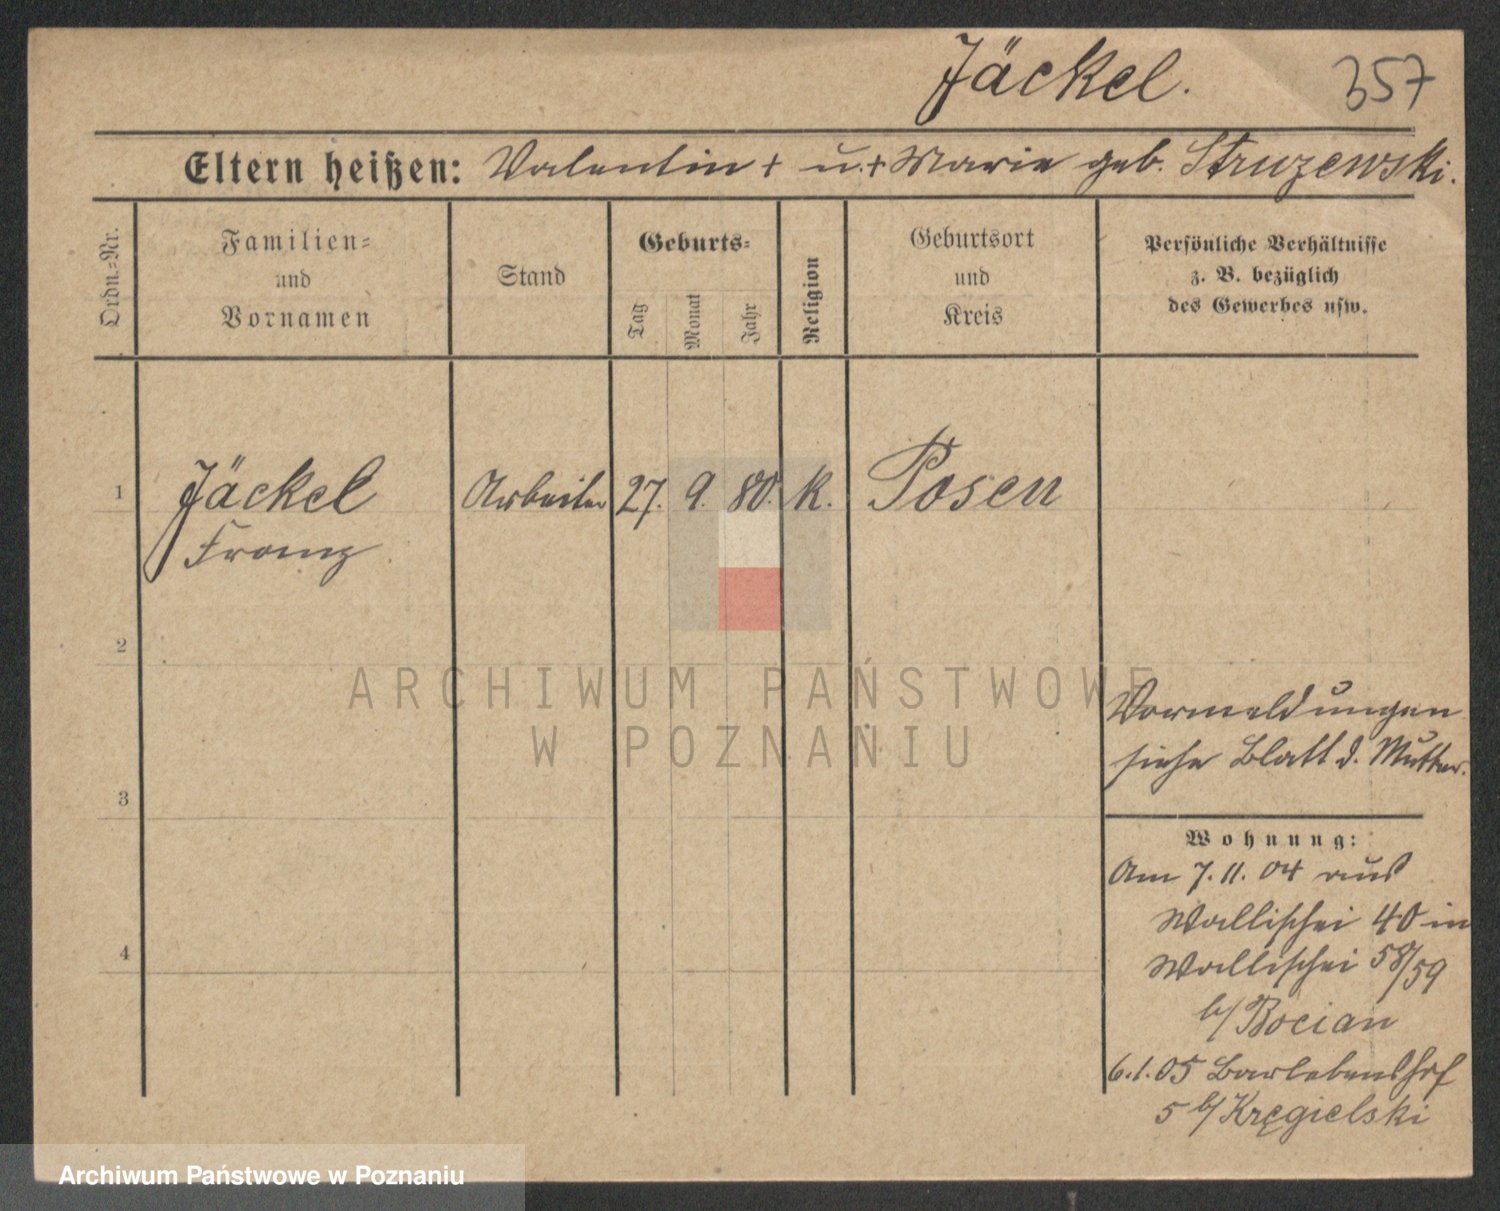 Jäckel.
357
Eltern heißen: Valentin + u. + Marie geb. Struzewski.
Ordn.=Nr.
Familien=
und
Vornamen
Stand
Geburts=
Tag
Monat
Jahr
Religion
Geburtsort
und
Kreis
Persönliche Verhältnisse
z. B. bezüglich
des Gewerbes usw.
1 Jäckel Arbeiter 27. 9. 80. K. Posen
Franz
2
3
4
Vormeldungen
siehe Blatt d. Mutter.
Wohnung:
Am 7. 11. 04 aus
Wallischei 40 in
Wallischei 58/59
b/ Bocian
6. 1. 05 Barlebenshof
5 b/ Kręgielski
ARCHIWUM PAŃSTWOWE
W POZNANIU
Archiwum Państwowe w Poznaniu